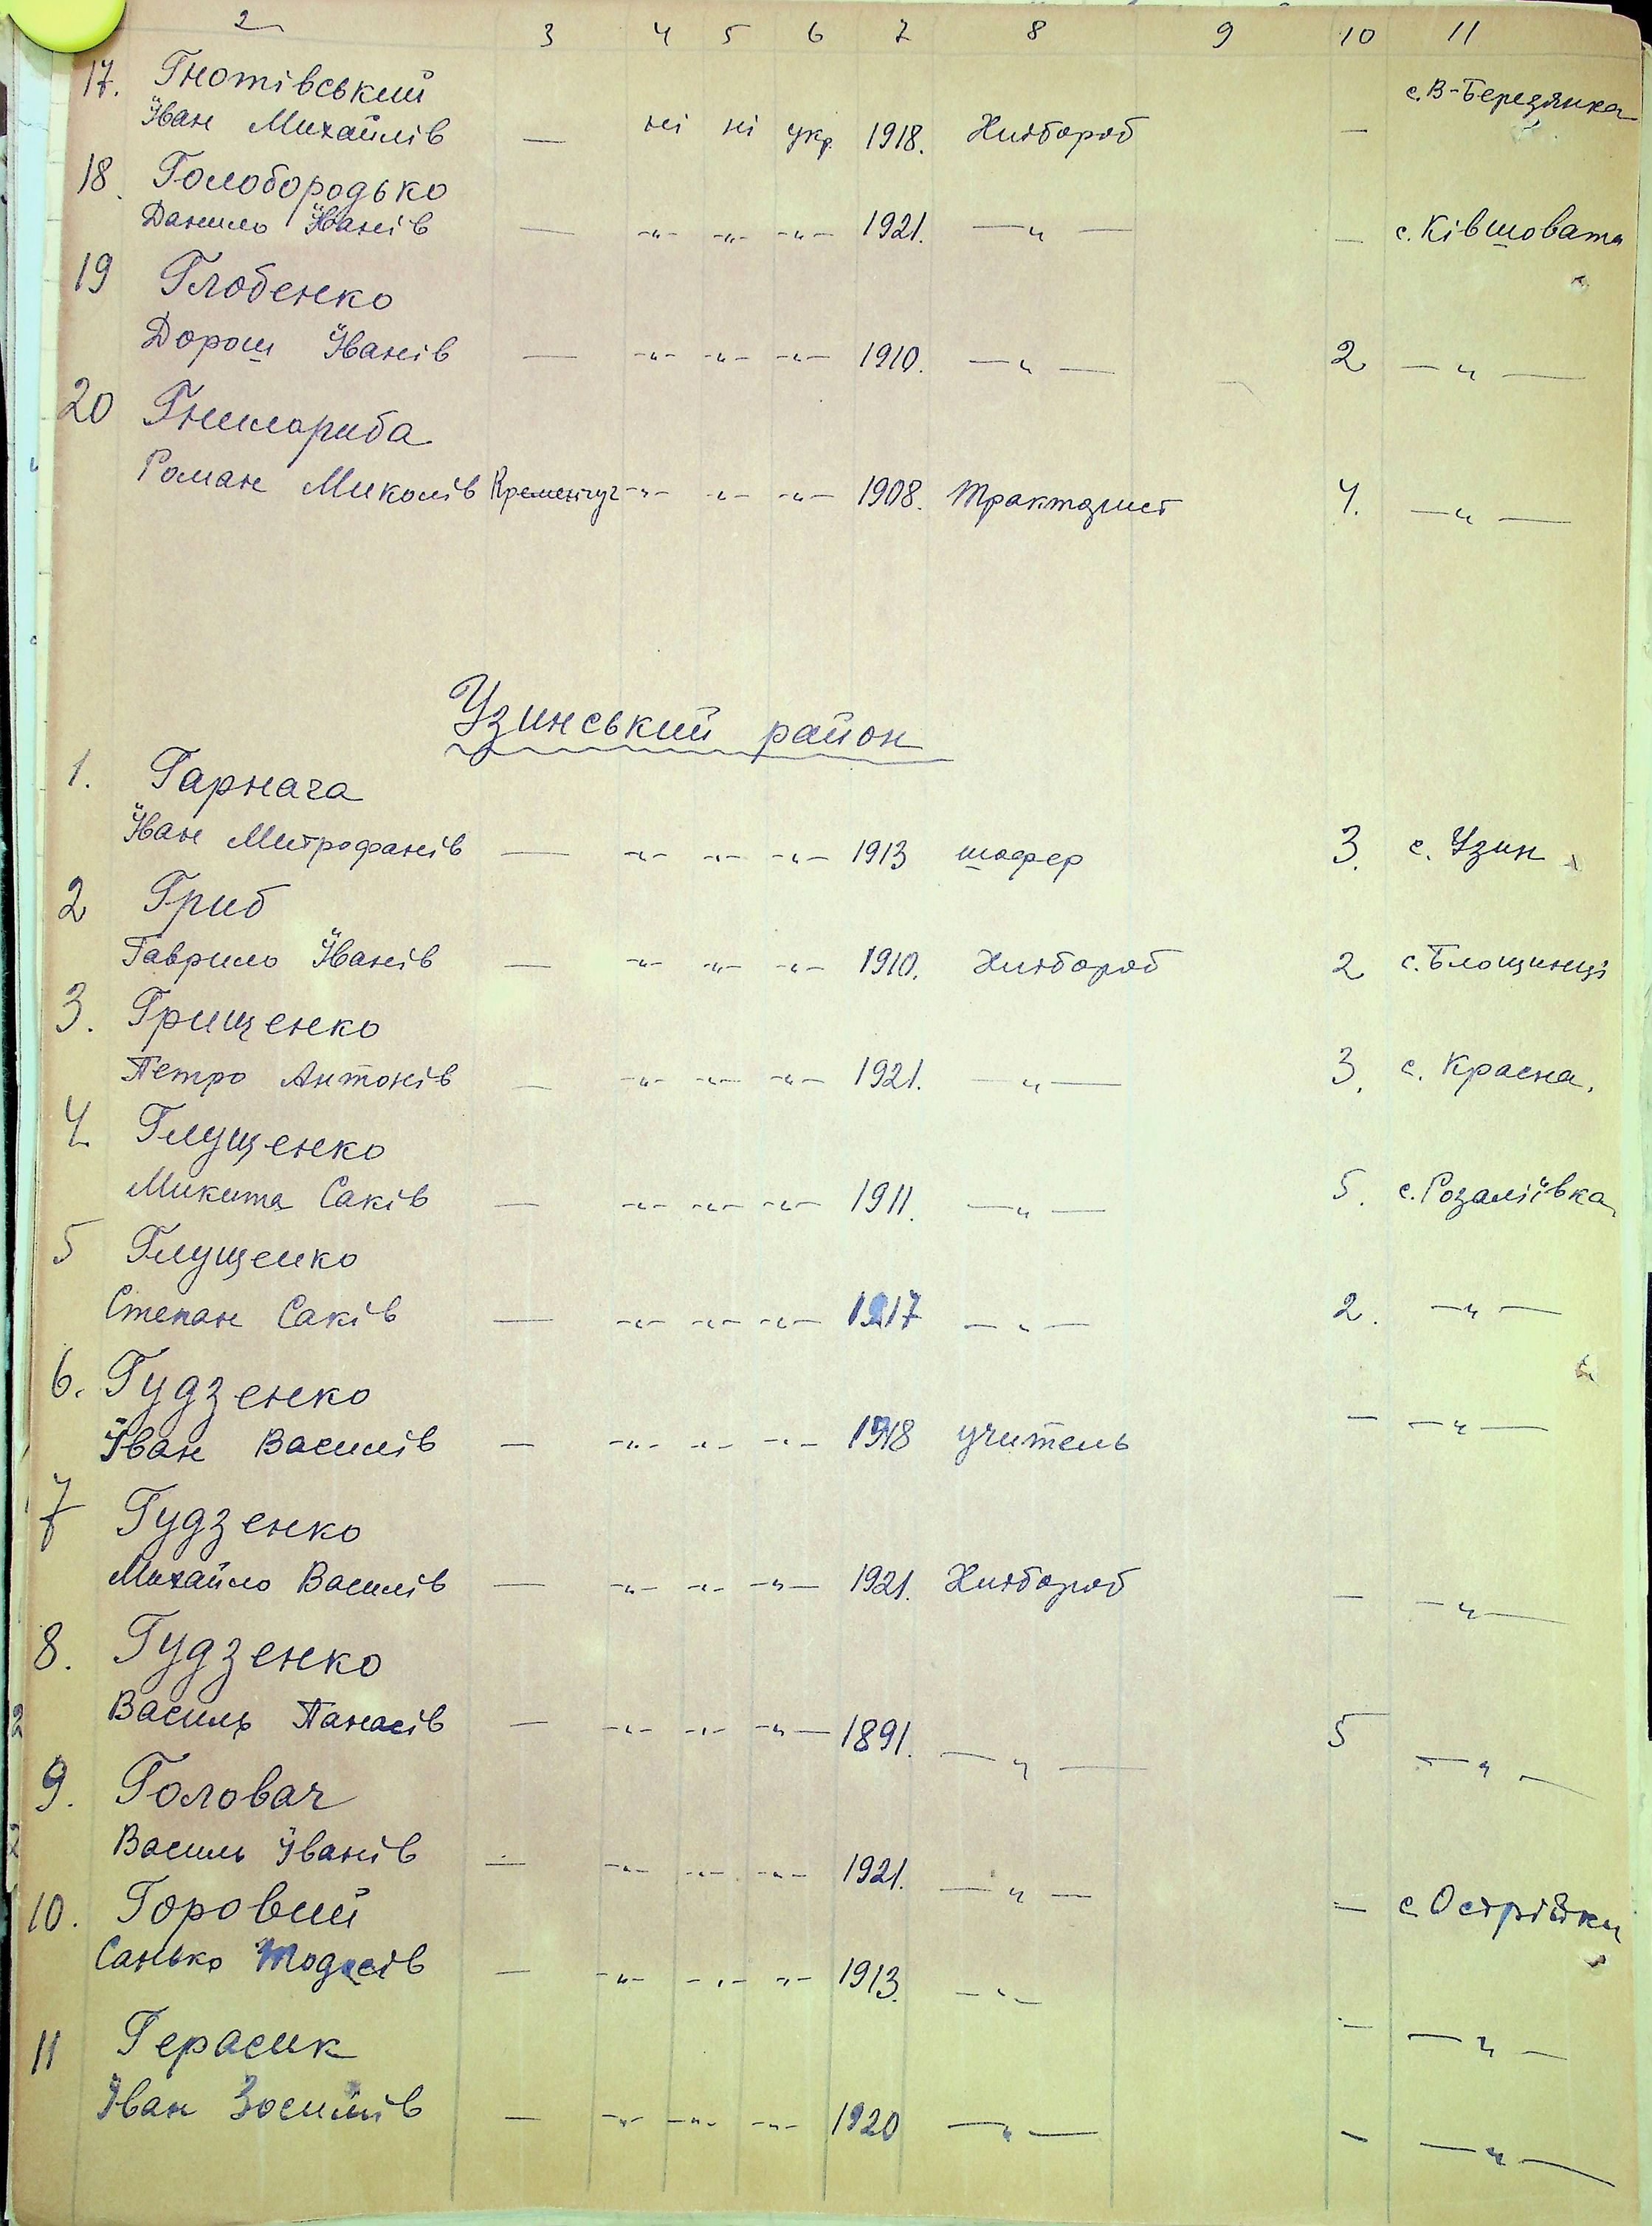 2 3 4 5 6 7 8 9 10 11
17. Гнотівський с. В-Березянка
Іван Михайлів — ні ні укр. 1918. Хлібороб —
18. Голобородько
Данило Іванів — -"- -"- -"- 1921. —"— — с. Ківшовата
19 Глобенко
Дорош Іванів — -"- -"- -"- 1910. —"— 2 —"—
20 Гнилориба
Роман Миколів Кременчуг -"- -"- -"- 1908. Тракторист 4. —"—
Узинський район
1. Гарнага
Іван Митрофанів — -"- -"- -"- 1913 шофер 3. с. Узин
2 Гриб
Гаврило Іванів — -"- -"- -"- 1910. Хлібороб 2 с. Блощинці
3. Грищенко
Петро Антонів — -"- -"- -"- 1921. —"— 3. с. Красна.
4 Глущенко
Микита Саків — -"- -"- -"- 1911. —"— 5. с. Розаліївка
5 Глущенко
Степан Саків — -"- -"- -"- 1917 —"— 2. —"—
6. Гудзенко
Іван Василів — -"- -"- -"- 1918 учитель — —"—
7 Гудзенко
Михайло Василів — -"- -"- -"- 1921. Хлібороб — —"—
8. Гудзенко
Василь Панасів — -"- -"- -"- 1891. —"— 5 —"—
9. Головач
Василь Іванів — -"- -"- -"- 1921. —"— — с. Острійки
10. Горовий
Санько Тодосів — -"- -"- -"- 1913. —"— — —"—
11 Герасик
Іван Зосимів — -"- -"- -"- 1920 —"— — —"—